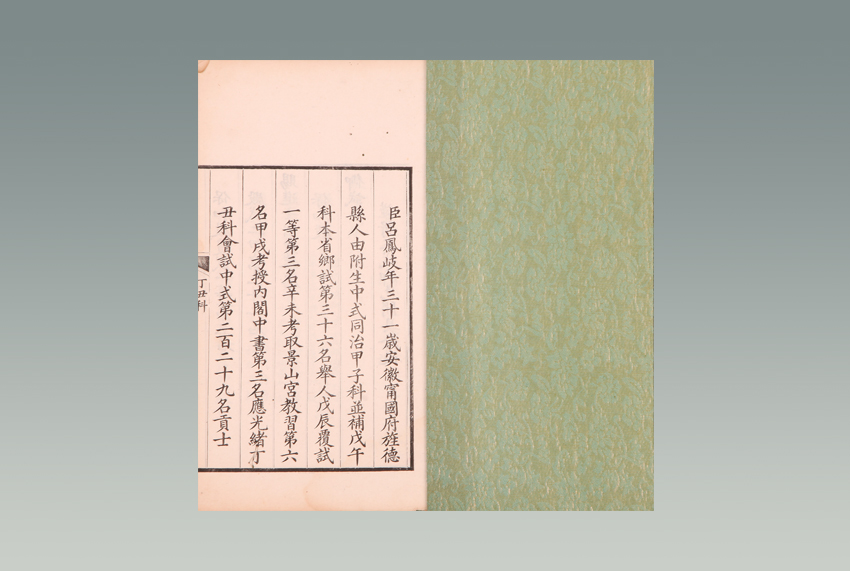 臣呂鳳岐年三十一歲安徽甯國府旌德
縣人由附生中式同治甲子科並補戊午
科本省鄉試第三十六名舉人戊辰覆試
一等第三名辛未考取景山宮教習第六
名甲戌考授內閣中書第三名應光緒丁
丑科會試中式第二百二十九名貢士
丁丑科